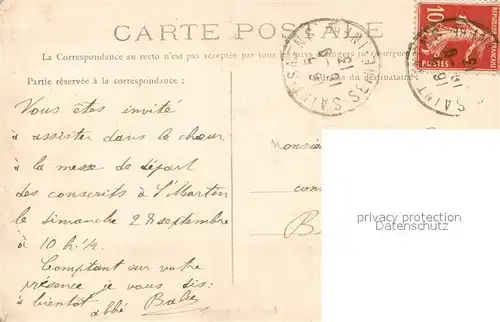 CARTE POSTALE
La Correspondance au recto n'est pas acceptée par tous les pays étrangers (se renseigner
Partie réservée à la correspondance : du destinataire
10
POSTES
RÉPUBLIQUE FRANÇAISE
Vous êtes invité
à assister dans le chœur
à la messe de départ
des conscrits à St Martin
le dimanche 28 septembre
à 10 h. 1/4.
Comptant sur votre
présence je vous dis :
à bientôt
abbé
Monsie
con
B
privacy protection
Datenschutz